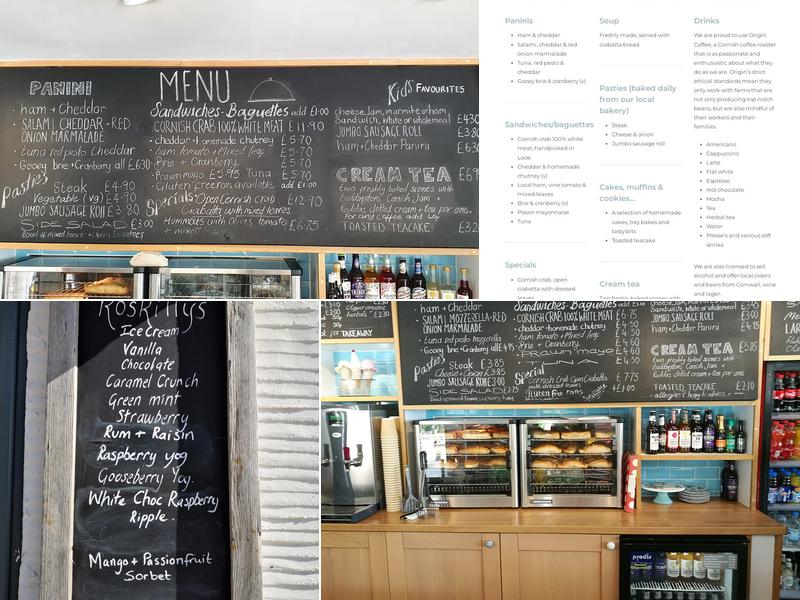 PANINI
ham + Cheddar
SALAMI CHEDDAR + RED
ONION MARMALADE
tuna red pesto Cheddar
Gooey brie + Cranberry all £6.30
Pasties
Steak £4.90
Vegetable (vg) £4.90
JUMBO SAUSAGE ROLL £3.80
SIDE SALAD £3.00
MENU
Sandwiches - Baguettes add £1.00
CORNISH CRAB 100% WHITE MEAT £11.90
cheddar + homemade chutney £5.70
ham tomato + Mixed leaf £5.70
Brie + Cranberry £5.70
Prawn mayo £5.95 Tuna £5.70
Gluten free rolls available add £1.00
Specials
Open Cornish crab £12.90
Ciabatta with mixed leaves
Hummous with Olives tomato £6.75
Kid's FAVOURITES
cheese, Jam, marmite or ham
Sandwich, white or wholemeal
JUMBO SAUSAGE ROLL
ham + Cheddar Panini
CREAM TEA
two freshly baked scones with
Boddingtons Cornish Jam +
Rodda's clotted cream + tea for one.
For any coffee add 60p
TOASTED TEACAKE
Paninis
Ham & cheddar
Salami, cheddar & red
onion marmalade
Tuna, red pesto &
cheddar
Gooey brie & cranberry (v)
Sandwiches/baguettes
Cornish crab 100% white
meat, handpicked in
Looe
Cheddar & homemade
chutney (v)
Local ham, vine tomato &
mixed leaves
Brie & cranberry (v)
Prawn mayonnaise
Tuna
Specials
Cornish crab, open
ciabatta with dressed
Soup
Freshly made, served with
ciabatta bread
Pasties (baked daily
from our local
bakery)
Steak
Cheese & onion
Jumbo sausage roll
Cakes, muffins &
cookies...
A selection of homemade
cakes, tray bakes and
tasty bits
Toasted teacake
Cream tea
Two freshly baked scones with
Drinks
We are proud to use Origin
Coffee, a Cornish coffee roaster
that is as passionate and
enthusiastic about what they
do as we are. Origin's strict
ethical standards mean they
only work with farms that are
not only producing top notch
beans, but are also mindful of
their workers and their
families.
Americano
Cappuccino
Latte
Flat white
Espresso
Hot chocolate
Mocha
Tea
Herbal tea
Water
Presse's and various soft
drinks
We are also licensed to sell
alcohol and offer local ciders
and beers from Cornwall, wine
and lager.
Roskillys
Ice Cream
Vanilla
Chocolate
Caramel Crunch
Green mint
Strawberry
Rum + Raisin
Raspberry yog
Gooseberry Yog.
White Choc Raspberry
Ripple.
Mango + Passionfruit
Sorbet
TAKEAWAY
ham + Cheddar
SALAMI MOZZERELLA - RED
ONION MARMALADE
tuna red pesto mozzerella
Gooey brie + Cranberry all £4.75
Pasties
Steak £3.85
Cheese + Onion £3.85
JUMBO SAUSAGE ROLL £3.00
SIDE SALAD £2.75
Sandwiches - Baguettes add £1.00
CORNISH CRAB 100% WHITE MEAT £6.75
cheddar + homemade chutney £4.50
ham tomato + Mixed leaf £4.50
Brie + Cranberry £4.50
Prawn mayo £4.60
Tuna £4.50
Special
Cornish Crab Open Ciabatta £7.75
with dressed leaves
gluten free rolls
Sandwich, white or wholemeal £3.45
JUMBO SAUSAGE ROLL £3.00
ham + Cheddar Panini £4.75
CREAM TEA £5.85
two freshly baked scones with
Boddingtons Cornish Jam +
Rodda's clotted cream + tea for one
TOASTED TEACAKE £2.10